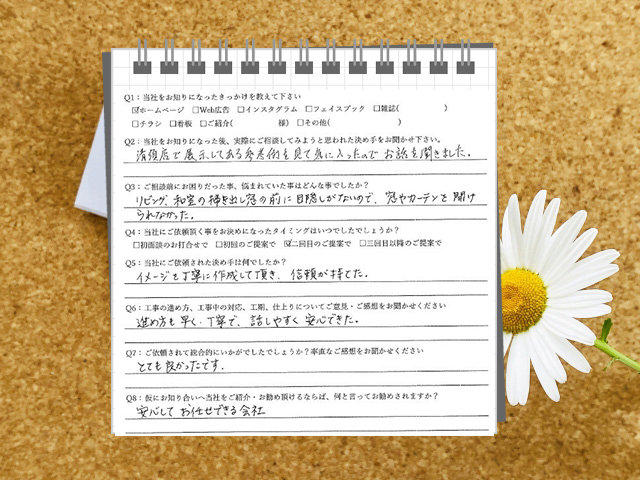 Q1：当社をお知りになったきっかけを教えて下さい
☑ホームページ □Web広告 □インスタグラム □フェイスブック □雑誌( )
□チラシ □看板 □ご紹介( 様) □その他( )
Q2：当社をお知りになった後、実際にご相談してみようと思われた決め手をお聞かせ下さい。
展示してある 見て気に入ったので お話を聞きました。
Q3：ご相談前にお困りだった事、悩まれていた事はどんな事でしたか？
リビング、和室の掃き出し窓の前に目隠しがないので、窓やカーテンを開け
られなかった。
Q4：当社にご依頼頂く事をお決めになったタイミングはいつでしたでしょうか？
□初面談のお打合せで □初回のご提案で ☑二回目のご提案で □三回目以降のご提案で
Q5：当社にご依頼された決め手は何でしたか？
イメージを丁寧に作成して頂き、信頼が持てた。
Q6：工事の進め方、工事中の対応、工期、仕上りについてご意見・ご感想をお聞かせください
進め方も早く、丁寧で、話しやすく安心できた。
Q7：ご依頼されて総合的にいかがでしたでしょうか？率直なご感想をお聞かせください
とても良かったです.
Q8：仮にお知り合いへ当社をご紹介・お勧め頂けるならば、何と言ってお勧めされますか？
安心してお任せできる会社